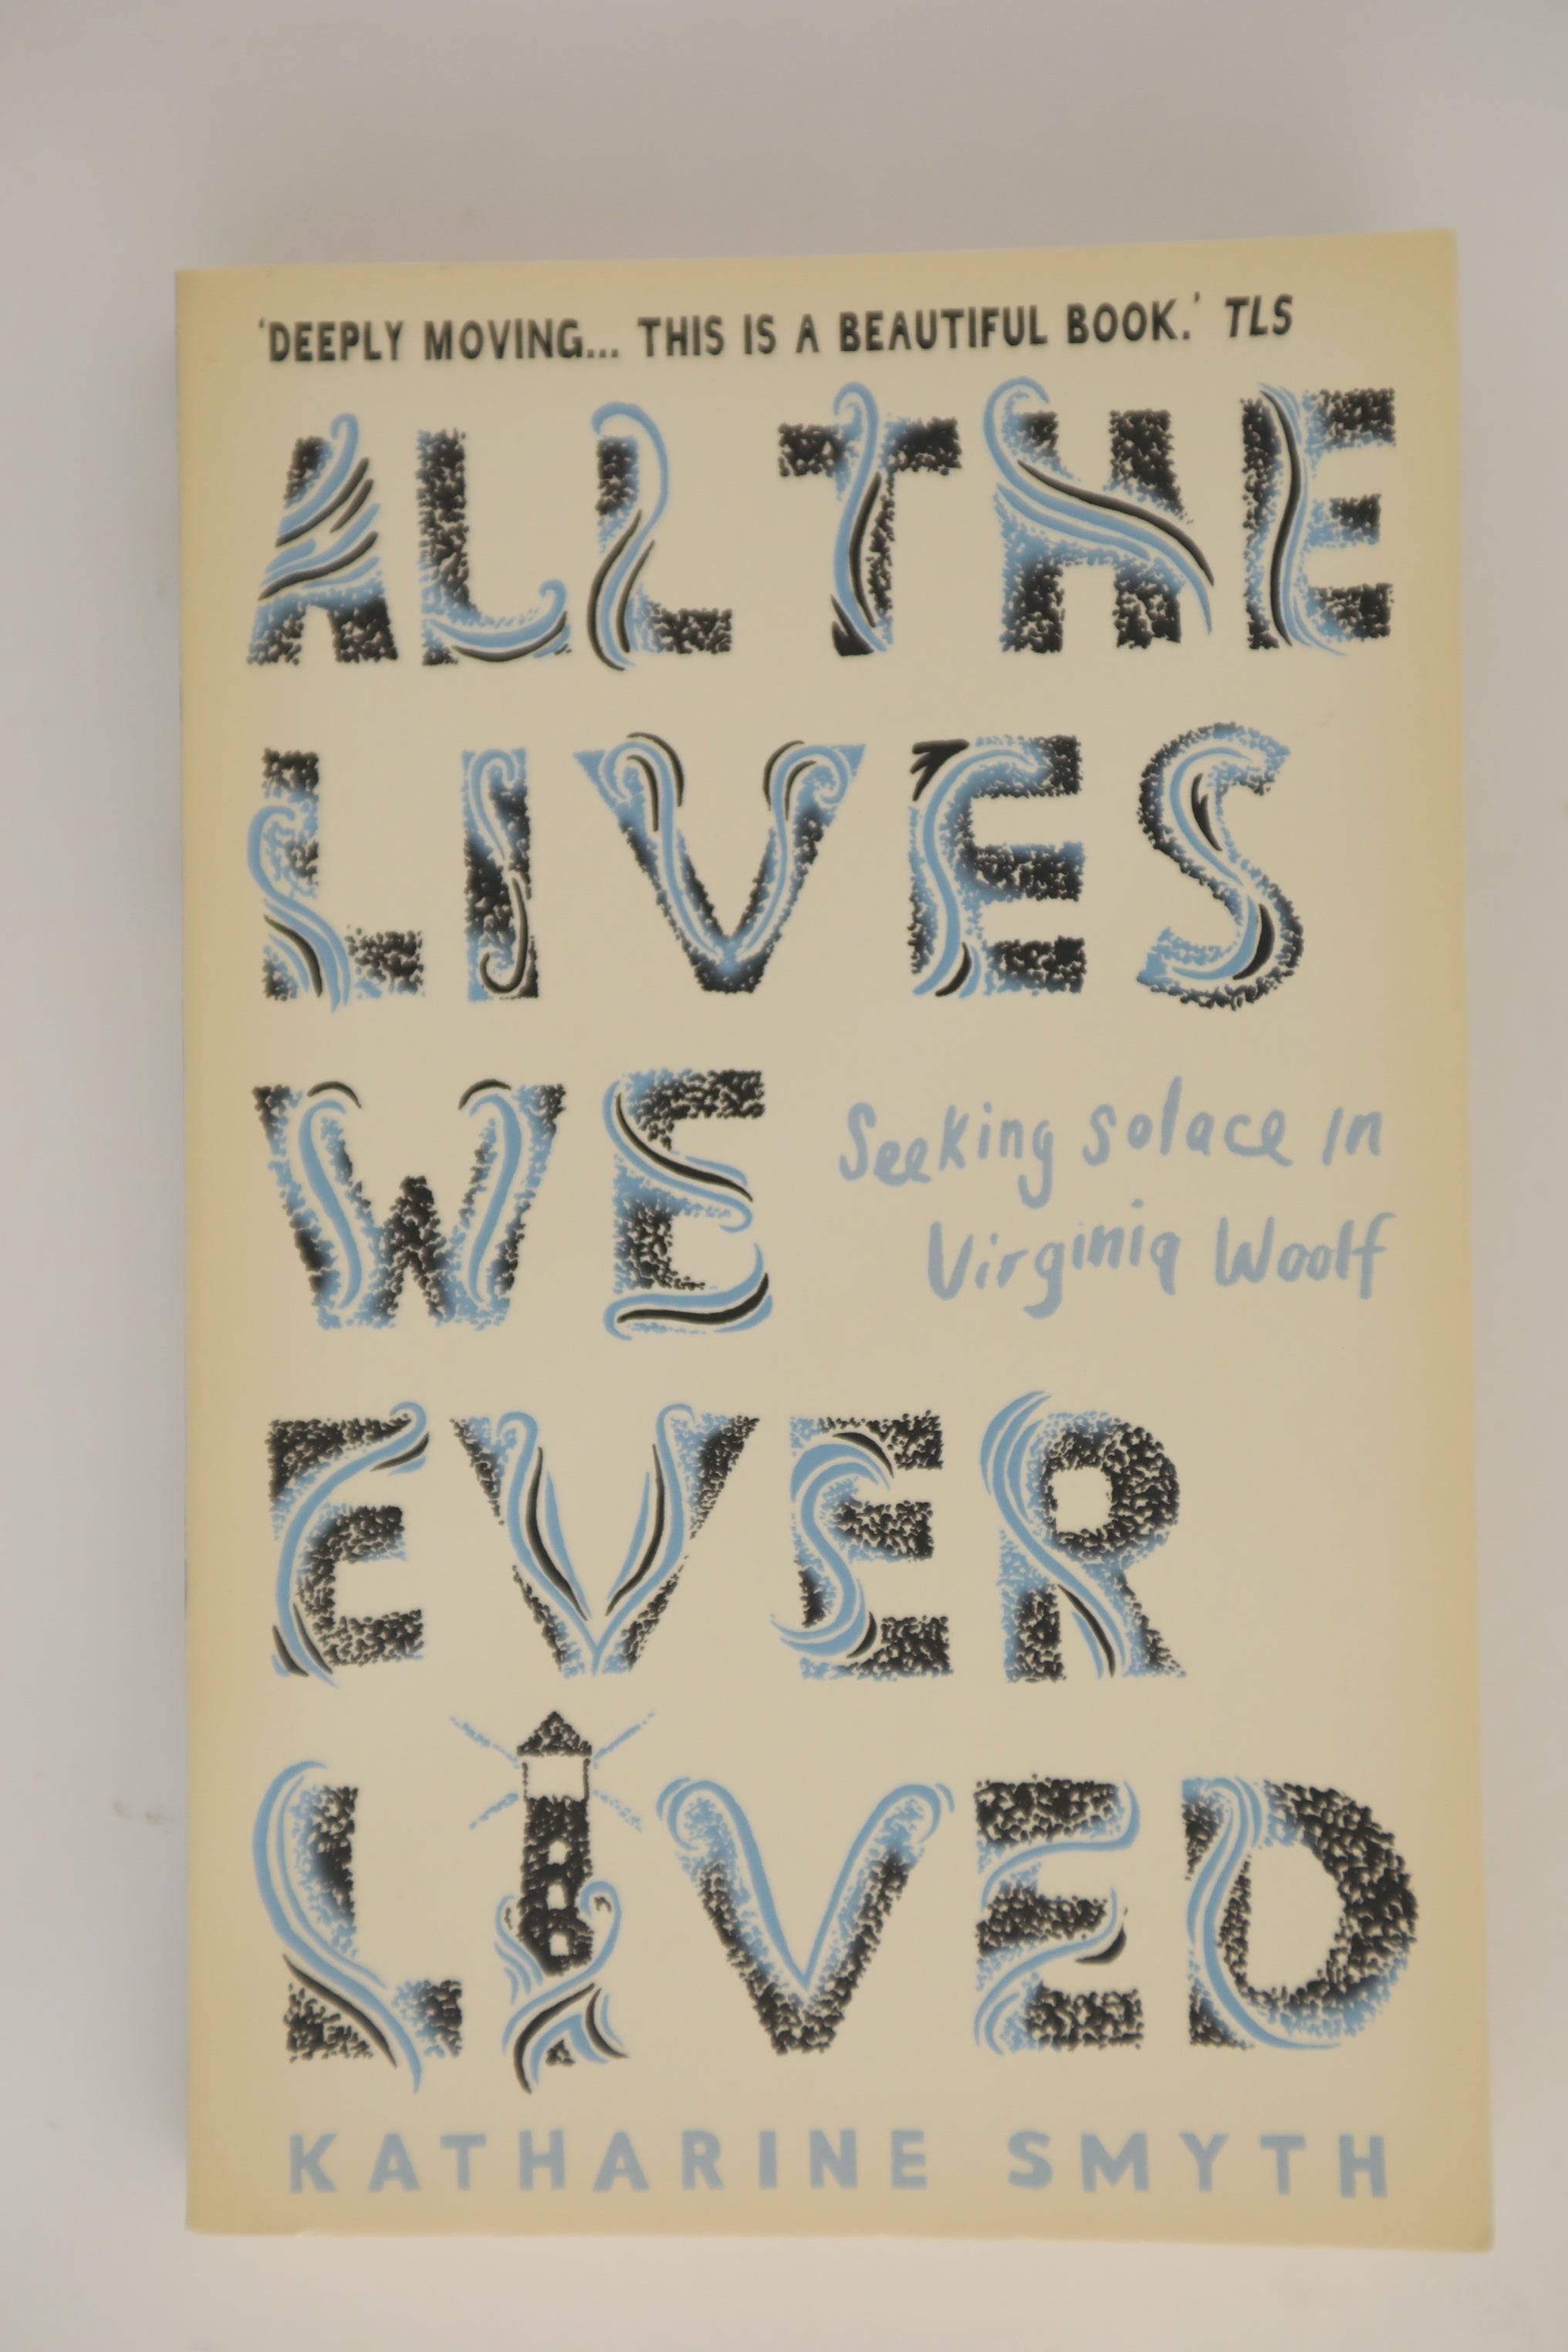 ‘DEEPLY MOVING... THIS IS A BEAUTIFUL BOOK.’ TLS
ALL THE
LIVES
WE
Seeking solace in
Virginia Woolf
EVER
LIVED
KATHARINE SMYTH